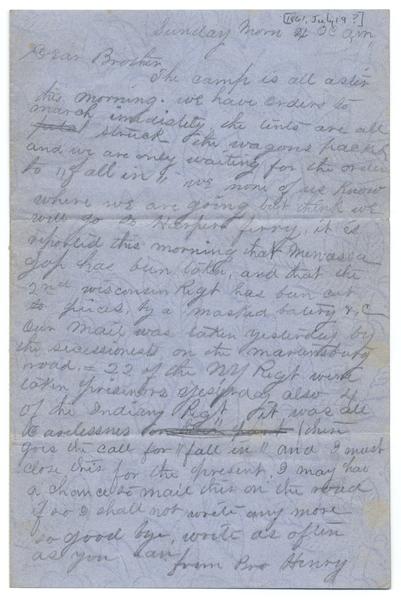 [1861, July 19?]
Sunday Morn 4 Oc a,m,
Dear Brother
The camp is all astir
this morning. we have orders to
march imediatly the tents are all
struck & the wagons packed
and we are only waiting for the order
to "fall in" we none of us know
where we are going but think we
will go to Harpers ferry, it is
reported this morning that Menassa
gap has been taken, and that the
2nd wisconsin Regt has been cut
to pieces, by a masked batery & C
Our Mail was taken yesterday by
the secessionists on the martinsburg
road. = 22 of the NY Regt were
taken prisoners yesterday also 4
of the Indiana Regt, it was all
Carelessnes (there
goes the call for "fall in" and I must
close this for the present. I may hav
a chance to mail this on the road
if so I shall not write any more
so good bye, write as often
as you can
from Bro Henry